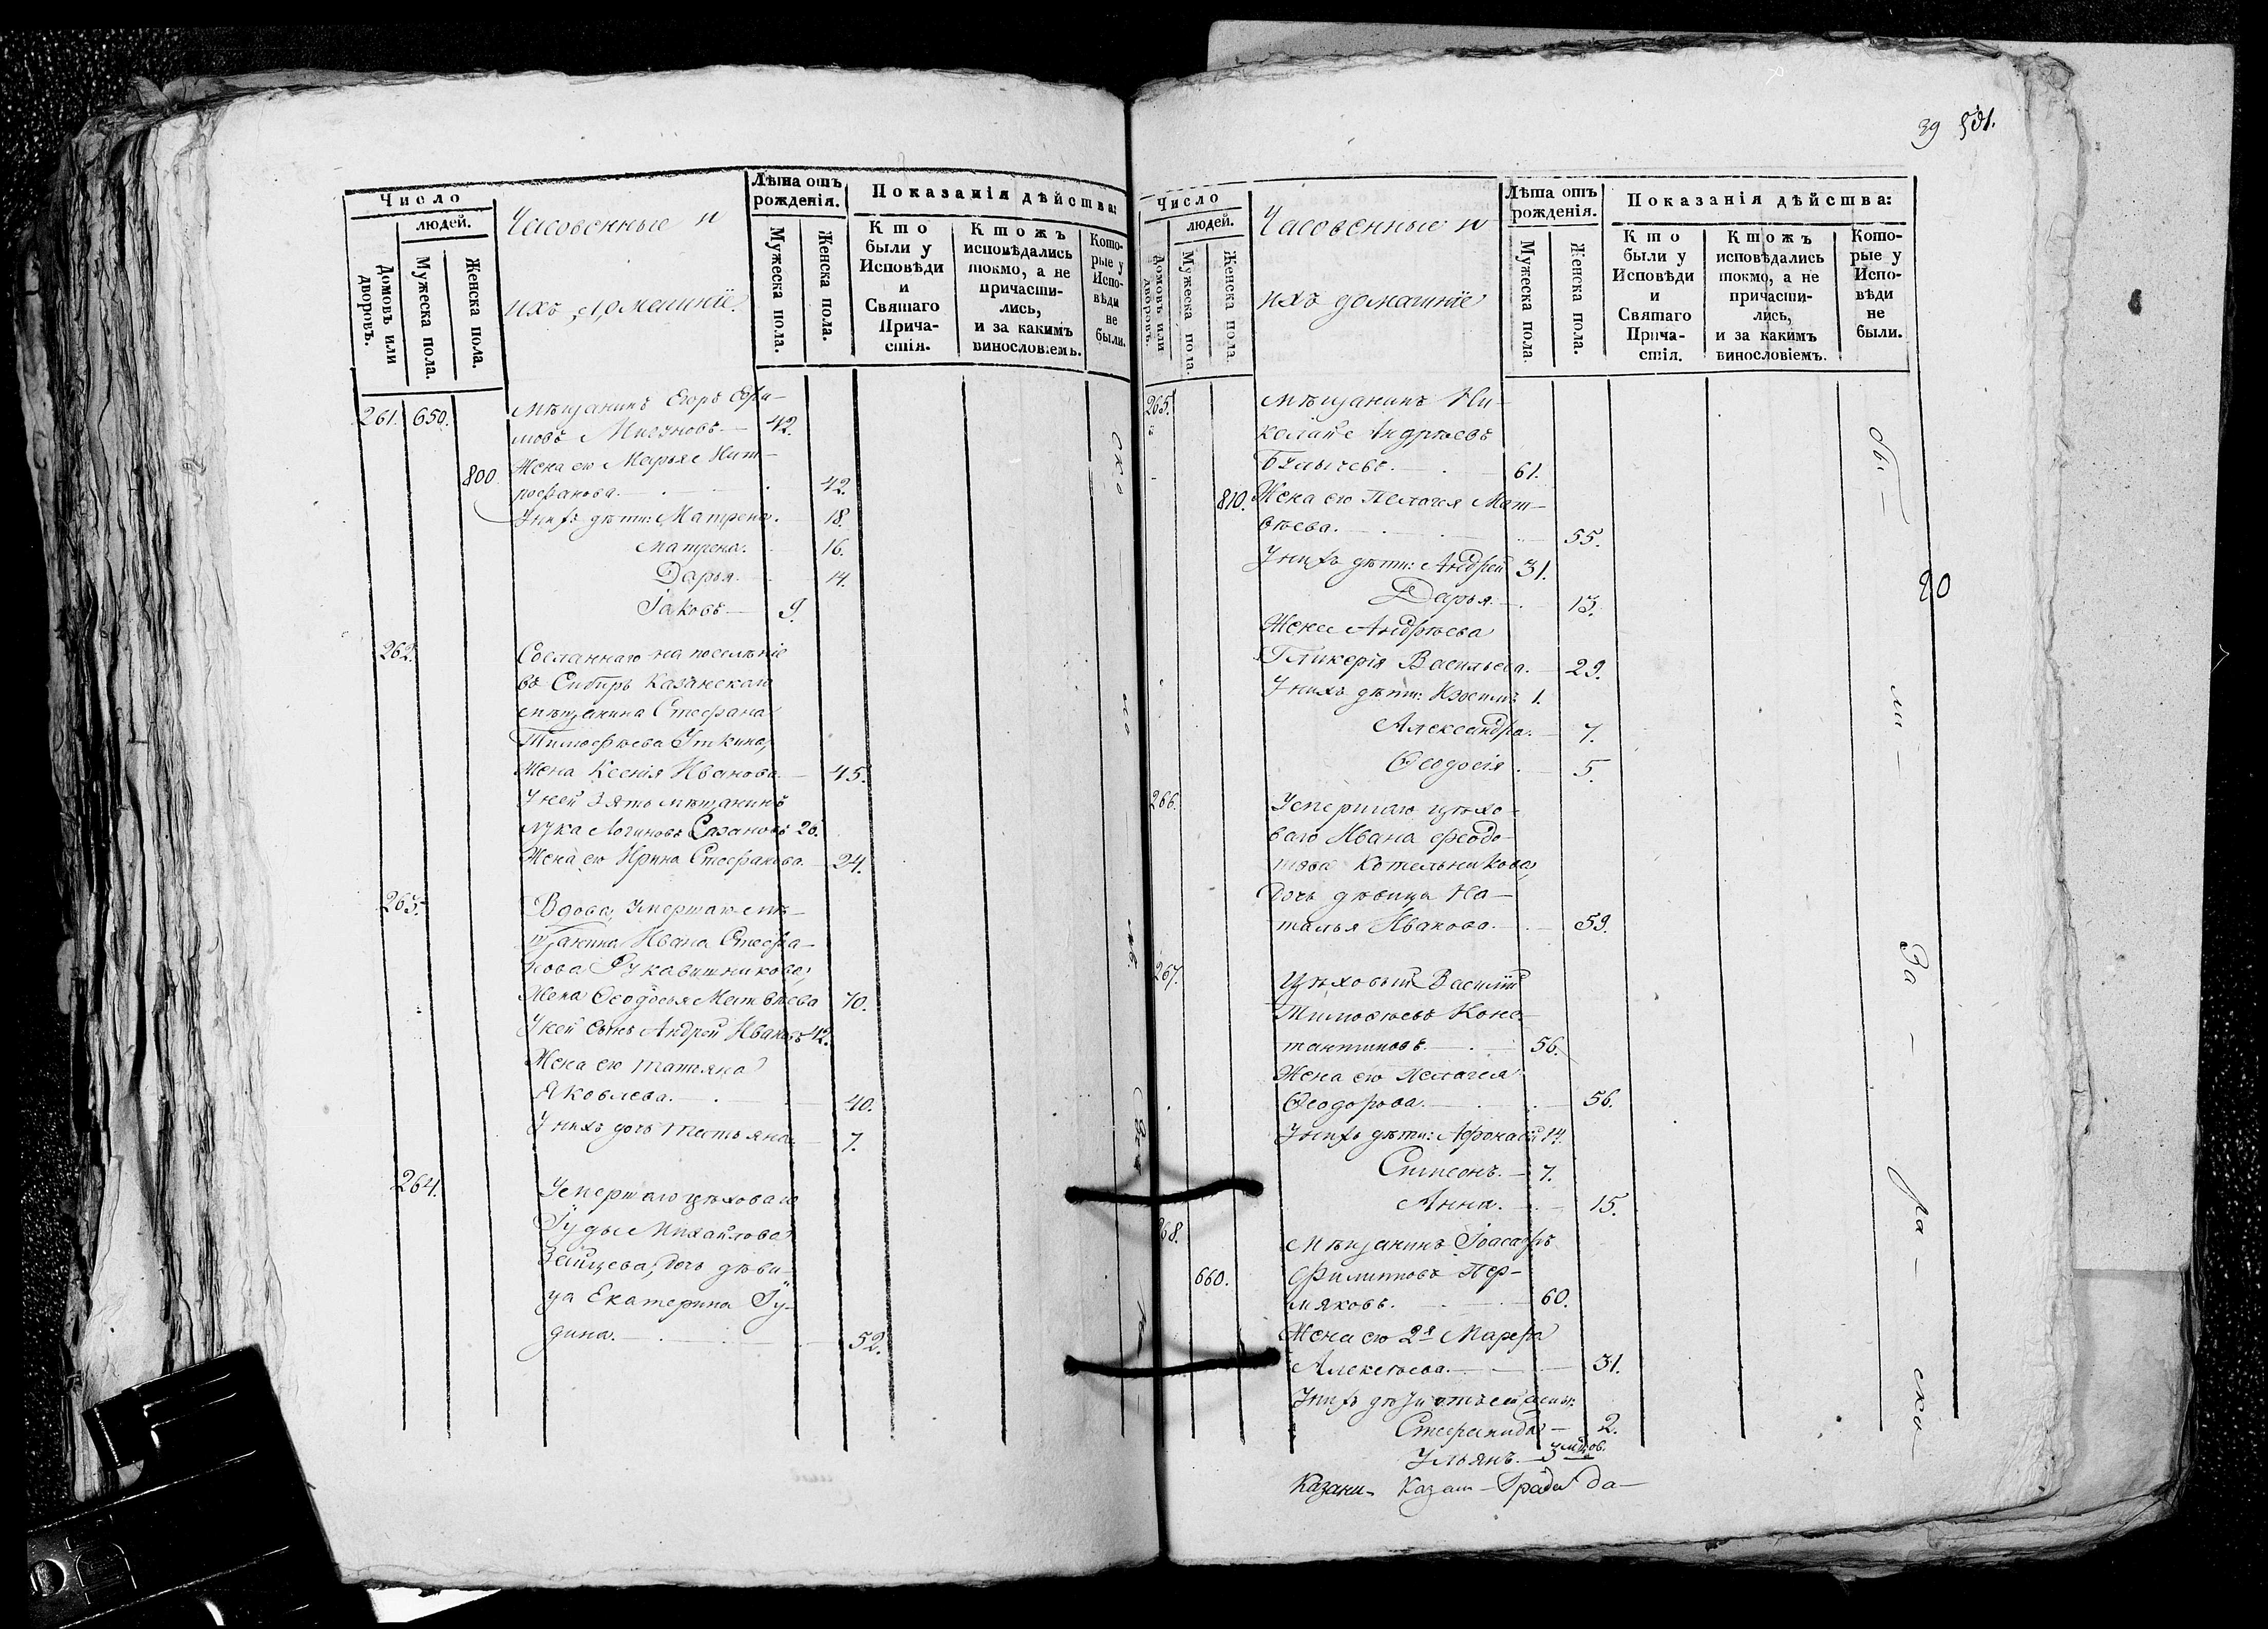 Число
людей.
Домовъ или дворовъ.
Мужеска пола.
Женска пола.
Часовенные и
ихъ домашніе.
Лѣта отъ рожденія.
Мужеска пола.
Женска пола.
Показанія дѣйства:
Кто были у Исповѣди и Святаго Причастія.
Ктожъ исповѣдались токмо, а не причастились, и за какимъ винословіемъ.
Которые у Исповѣди не были.
261. 650. Мѣщанинъ Егоръ Ефи-
мовъ 42.
800 Жена его Марья Мит-
рофанова. 42.
У нихъ дѣти: Матрена. 18.
Матрена. 16.
Дарья. 14.
Іаковъ 9.
262. Сосланнаго на поселѣніе
въ Сибирь Казанскаго
мѣщанина Стефана
Тимофѣева Уткина,
Жена Ксенія Иванова. 45.
У ней зять мѣщанинъ
Лука Логиновъ Сазановъ 26.
Жена его Ирина Стефанова. 24.
263. Вдова, умершаго мѣ-
щанина Ивана Стефа-
нова Рукавишникова,
Жена Ѳеодосья Матвѣева 70.
У ней сынъ Андрей Ивановъ 42.
Жена его Татьяна
Яковлева. 40.
У нихъ дочь Татьяна 7.
264. Умершаго цѣховаго
Іуды Михайлова
Зайцева, дочь дѣви-
ца Екатерина Іу-
дина. 52.
39 531.
Число
людей.
Домовъ или дворовъ.
Мужеска пола.
Женска пола.
Часовенные и
ихъ домашніе
Лѣта отъ рожденія.
Мужеска пола.
Женска пола.
Показанія дѣйства:
Кто были у Исповѣди и Святаго Причастія.
Ктожъ исповѣдались токмо, а не причастились, и за какимъ винословіемъ.
Которые у Исповѣди не были.
265. Мѣщанинъ Ни-
колай Андрѣевъ
61.
810. Жена его Пелагея Мат-
вѣева. 55.
У нихъ дѣти: Андрей 31.
Дарья. 13.
Жена Андрѣева
Гликерія Васильева. 29.
У нихъ дѣти: 1.
Александра. 7.
Ѳеодосія. 5.
266. Умершаго цѣхо-
ваго Ивана Феодо-
това Котельникова,
дочь дѣвица На-
талья Иванова. 59.
267. Цѣховый Василій
Тимофѣевъ Конс-
тантиновъ. 56.
Жена его Пелагея
Ѳеодорова. 56.
У нихъ дѣти: Афонасій 14.
Симеонъ. 7.
Анна. 15.
268. Мѣщанинъ Іоасафъ
660. Филиповъ Пер-
мяковъ. 60.
Жена его 2я Марфа
Алексѣева. 31.
У нихъ дѣти
Стефанида 2.
Ульянъ. 3 мцов.
Казани- Града
За-
ра-
ско